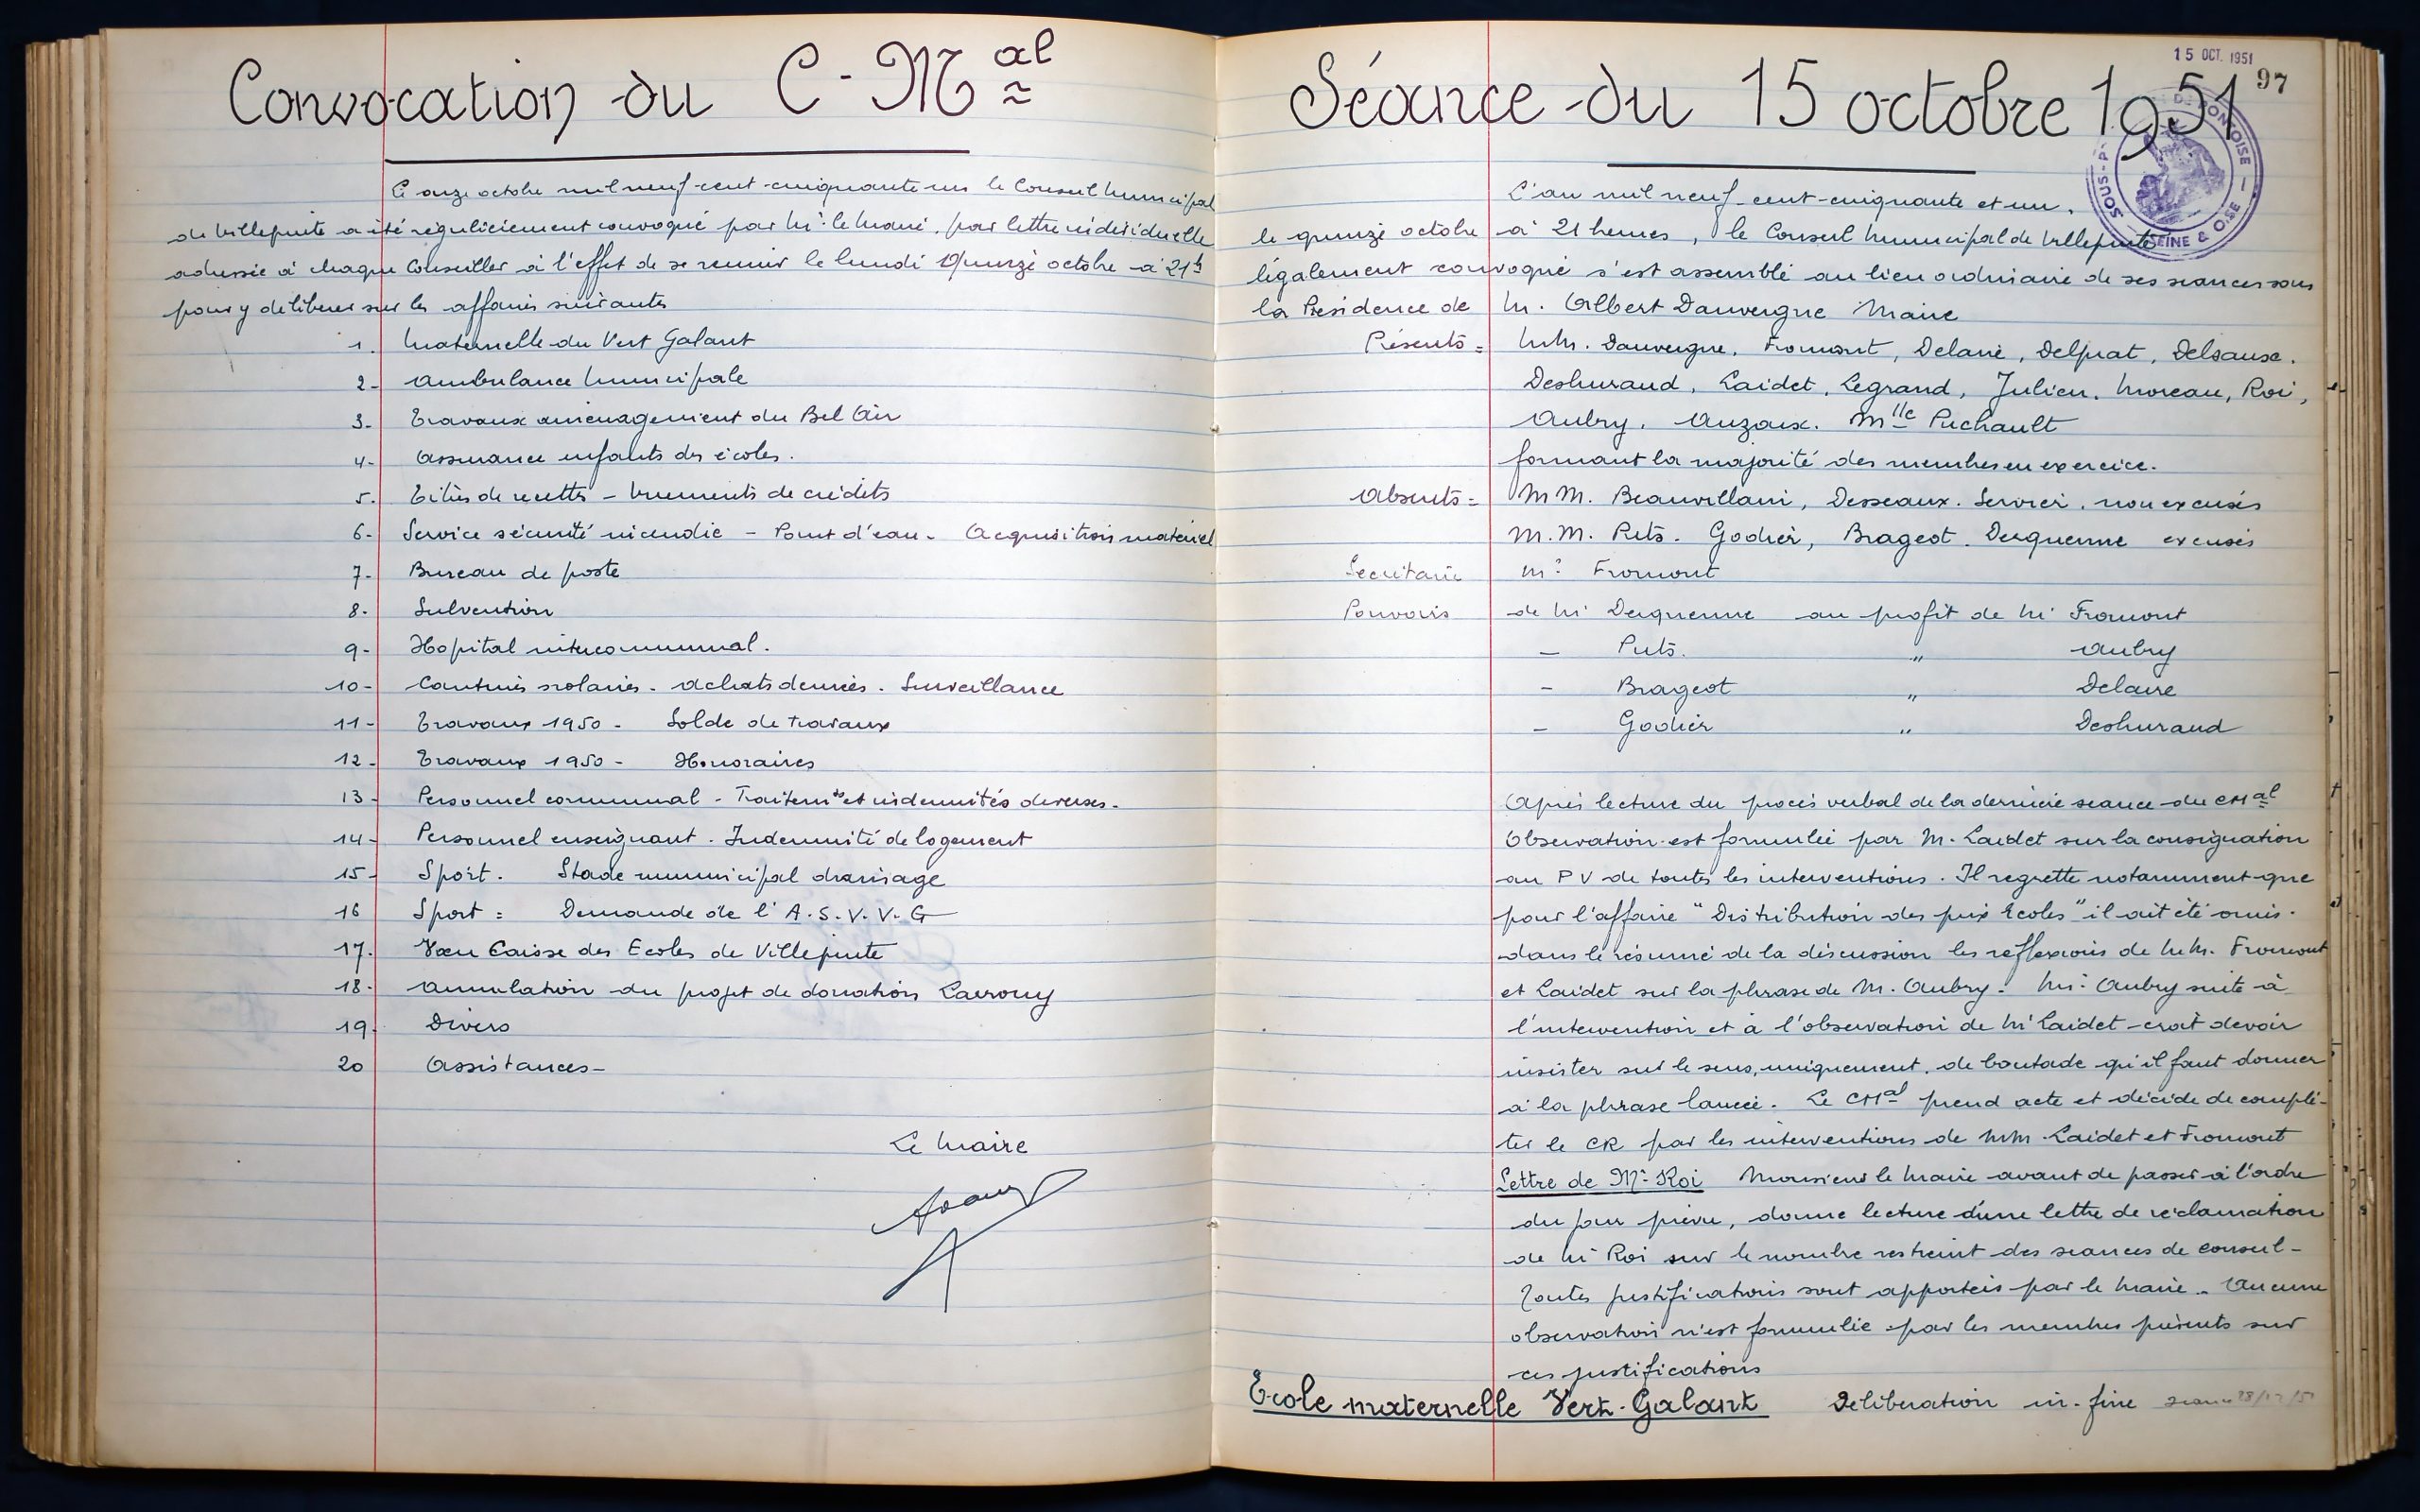 Convocation du C. M al
Le onze octobre mil neuf cent cinquante un le Conseil Municipal
de Villepinte a été régulièrement convoqué par Mr le Maire, par lettre individuelle
adressée à chaque Conseiller à l'effet de se réunir le lundi quinze octobre à 21h
pour y délibérer sur les affaires suivantes
1. Maternelle du Vert Galant
2- Ambulance Municipale
3- Travaux aménagement du Bel Air
4- Assurance enfants des écoles.
5. Titres de recettes - Virements de crédits
6- Service sécurité incendie - Point d'eau - Acquisition matériel
7- Bureau de poste
8. Subvention
9- Hopital intercommunal.
10- Cantines scolaires - Achats denrées. Surveillance
11- Travaux 1950 - Solde de travaux
12- Travaux 1950 - Honoraires
13- Personnel communal - Traitemts et indemnités diverses.
14- Personnel enseignant. Indemnité de logement
15- Sport. Stade municipal drainage
16 Sport = Demande de l'A.S.V.V.G
17. Vœu Caisse des Ecoles de Villepinte
18. Annulation du projet de donation
19. Divers
20 Assistances-
Le Maire
15 OCT. 1951
97
Séance du 15 octobre 1951
SOUS-P DE PONTOISE
SEINE & OISE
L'an mil neuf cent cinquante et un,
le quinze octobre à 21 heures, le Conseil Municipal de Villepinte
légalement convoqué s'est assemblé au lieu ordinaire de ses séances sous
la Présidence de M. Albert Dauvergne Maire
Présents = MM. Dauvergne, Fromont, Delaire, Delprat, Delsause.
Deshuraud, Laidet, Legrand, Julien, Moreau, Roi,
Aubry, Auzoux. Mlle Puchault
formant la majorité des membres en exercice.
Absents = MM. Beauvillain, Desseaux. Servier, non excusés
M.M. Puts. Godier, Brageot. Duquenne excusés
Secrétaire Mr Fromont
Pouvoirs de Mr Duquenne au profit de Mr Fromont
- Puts. " Aubry
- Brageot " Delaire
- Godier " Deshuraud
Après lecture du procès verbal de la dernière séance du CMal
Observation est formulée par M. Laidet sur la consignation
au PV de toutes les interventions. Il regrette notamment que
pour l'affaire "Distribution des prix Ecoles" il ait été omis.
dans le résumé de la discussion les réflexions de MM. Fromont
et Laidet sur la phrase de M. Aubry. Mr Aubry suite à
l'intervention et à l'observation de Mr Laidet croit devoir
insister sur le sens, uniquement, de boutade qu'il faut donner
à la phrase lancée. Le CMal prend acte et décide de complé-
ter le CR par les interventions de MM Laidet et Fromont
Lettre de Mr Roi Monsieur le Maire avant de passer à l'ordre
du jour prévu, donne lecture d'une lettre de réclamation
de Mr Roi sur le nombre restreint des séances de conseil-
Toutes justifications sont apportées par le Maire. Aucune
observation n'est formulée par les membres présents sur
ces justifications
Ecole maternelle Vert-Galant Délibération in-fine séance